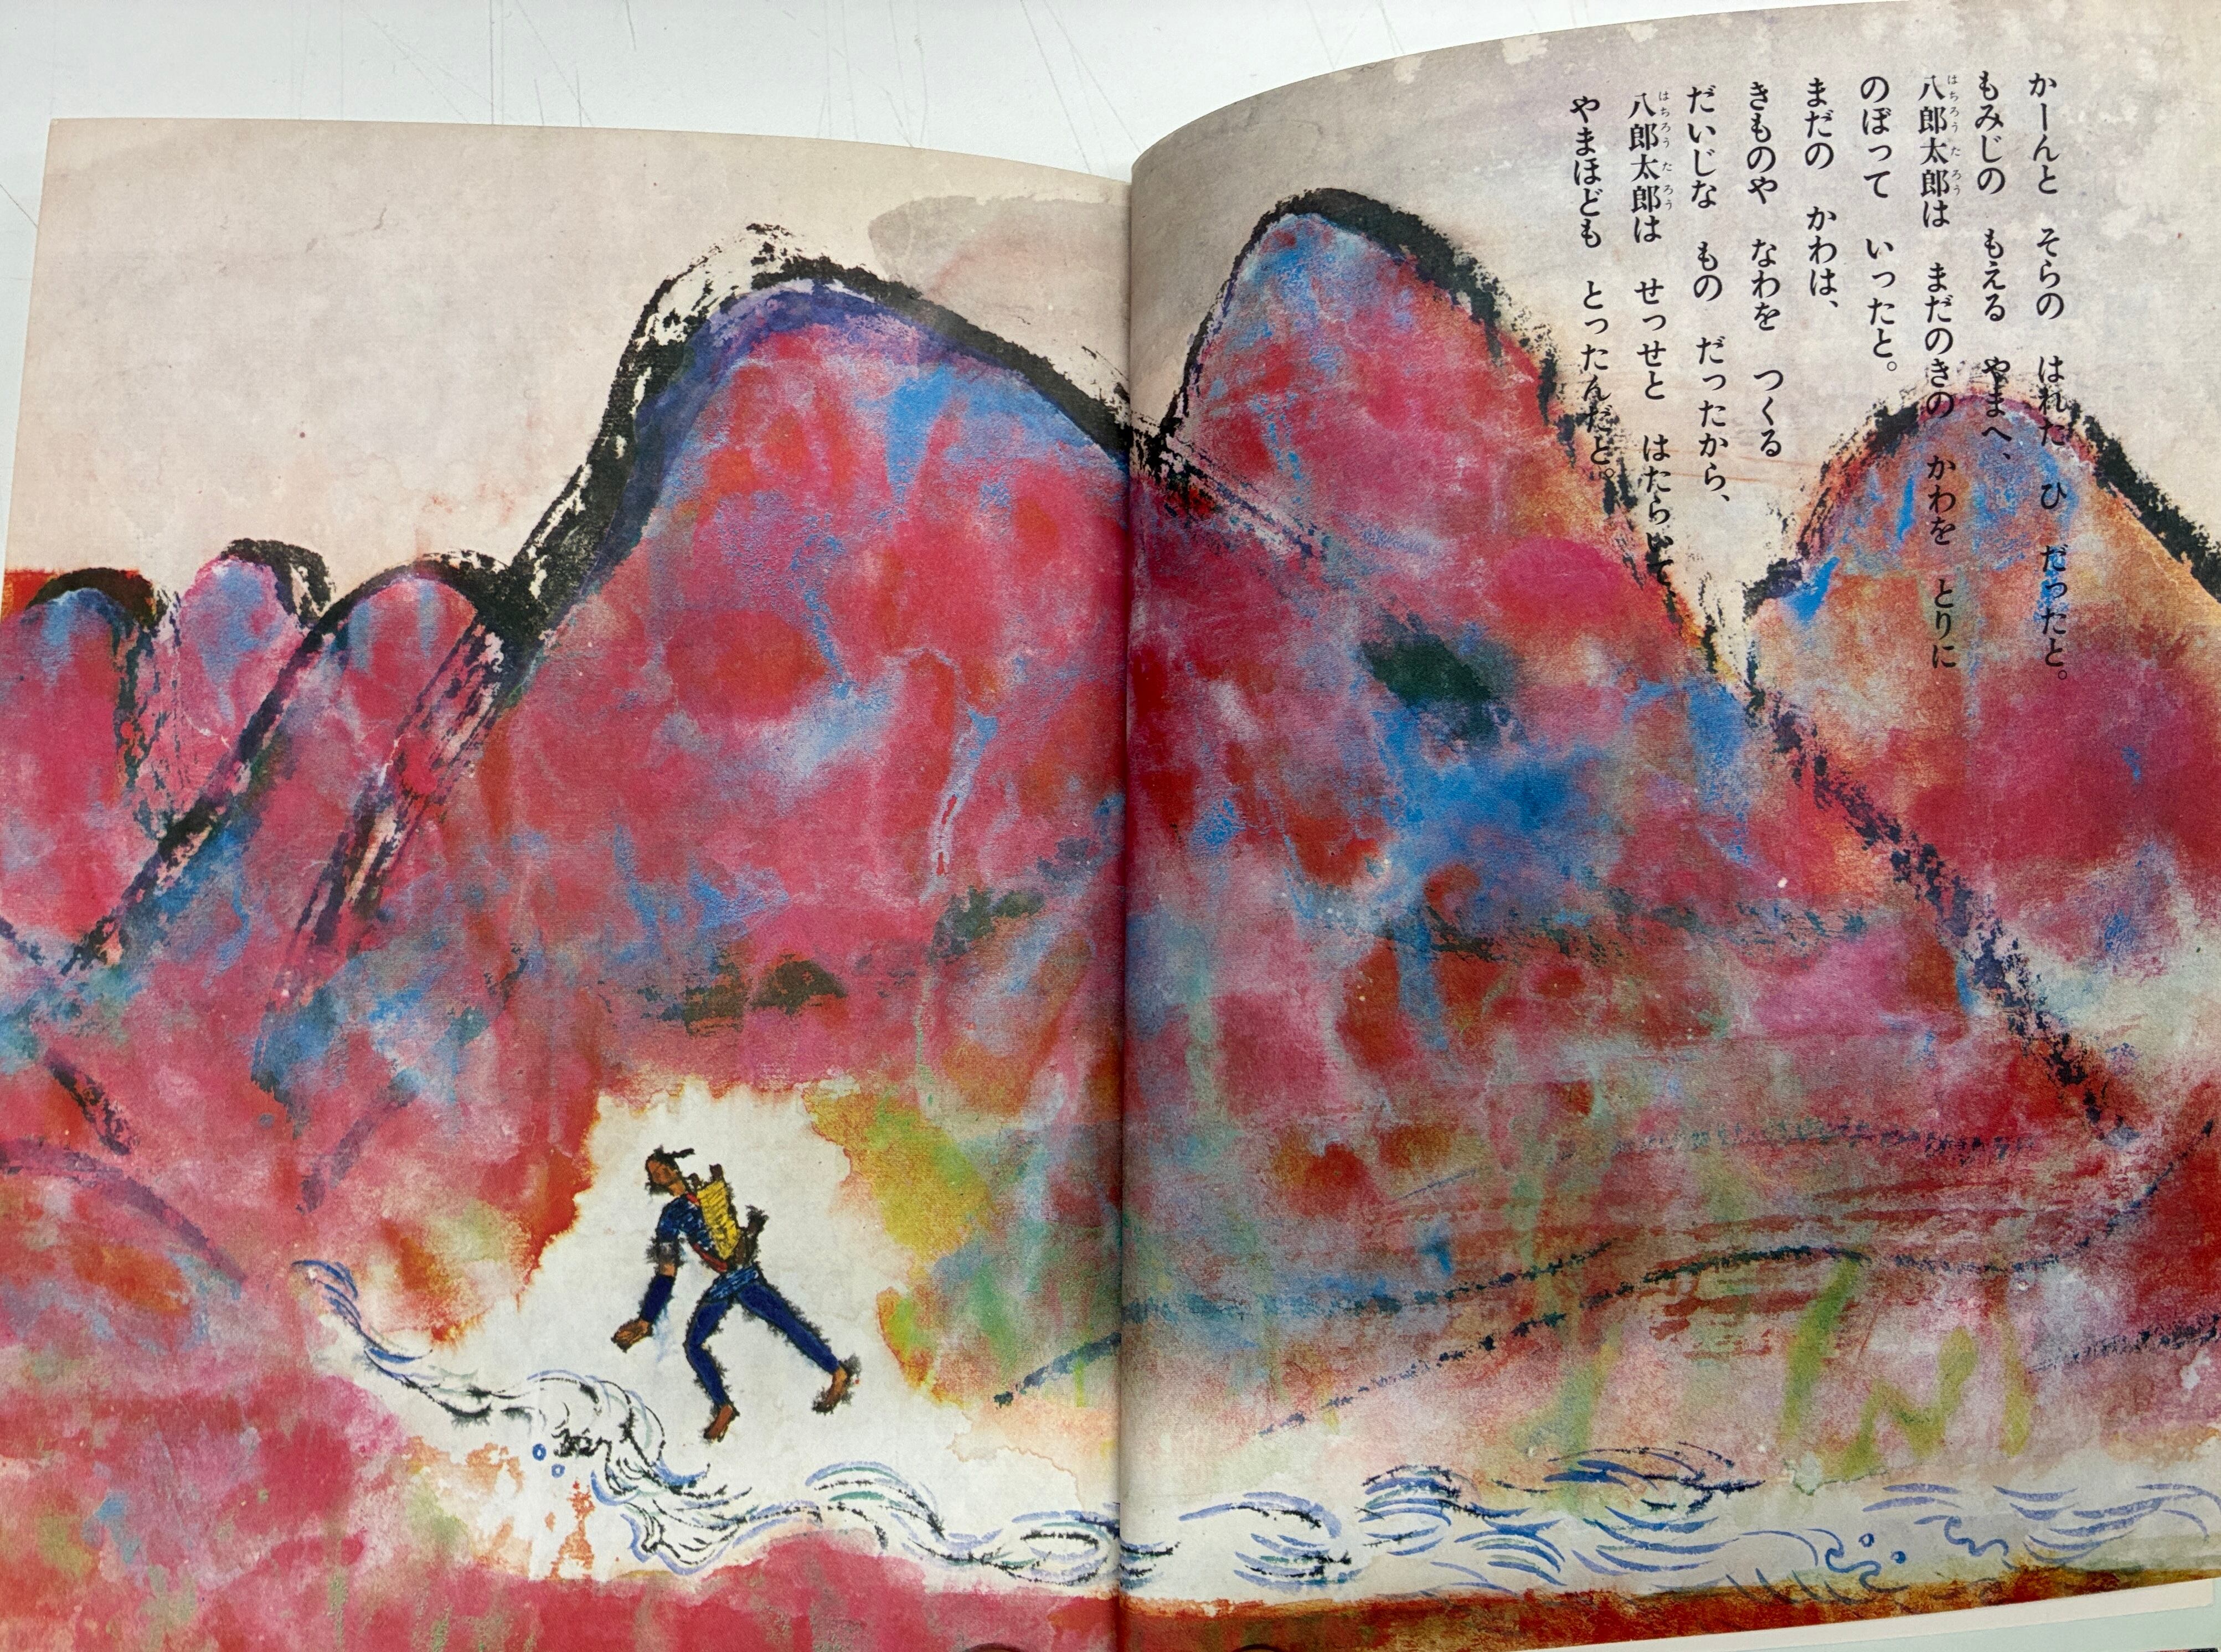 かーんと そらの はれた ひ だったと。
もみじの もえる やまへ、
八郎太郎は まだのきの かわを とりに
のぼって いったと。
まだの かわは、
きものや なわを つくる
だいじな もの だったから、
八郎太郎は せっせと はたらいて
やまほども とったんだと。